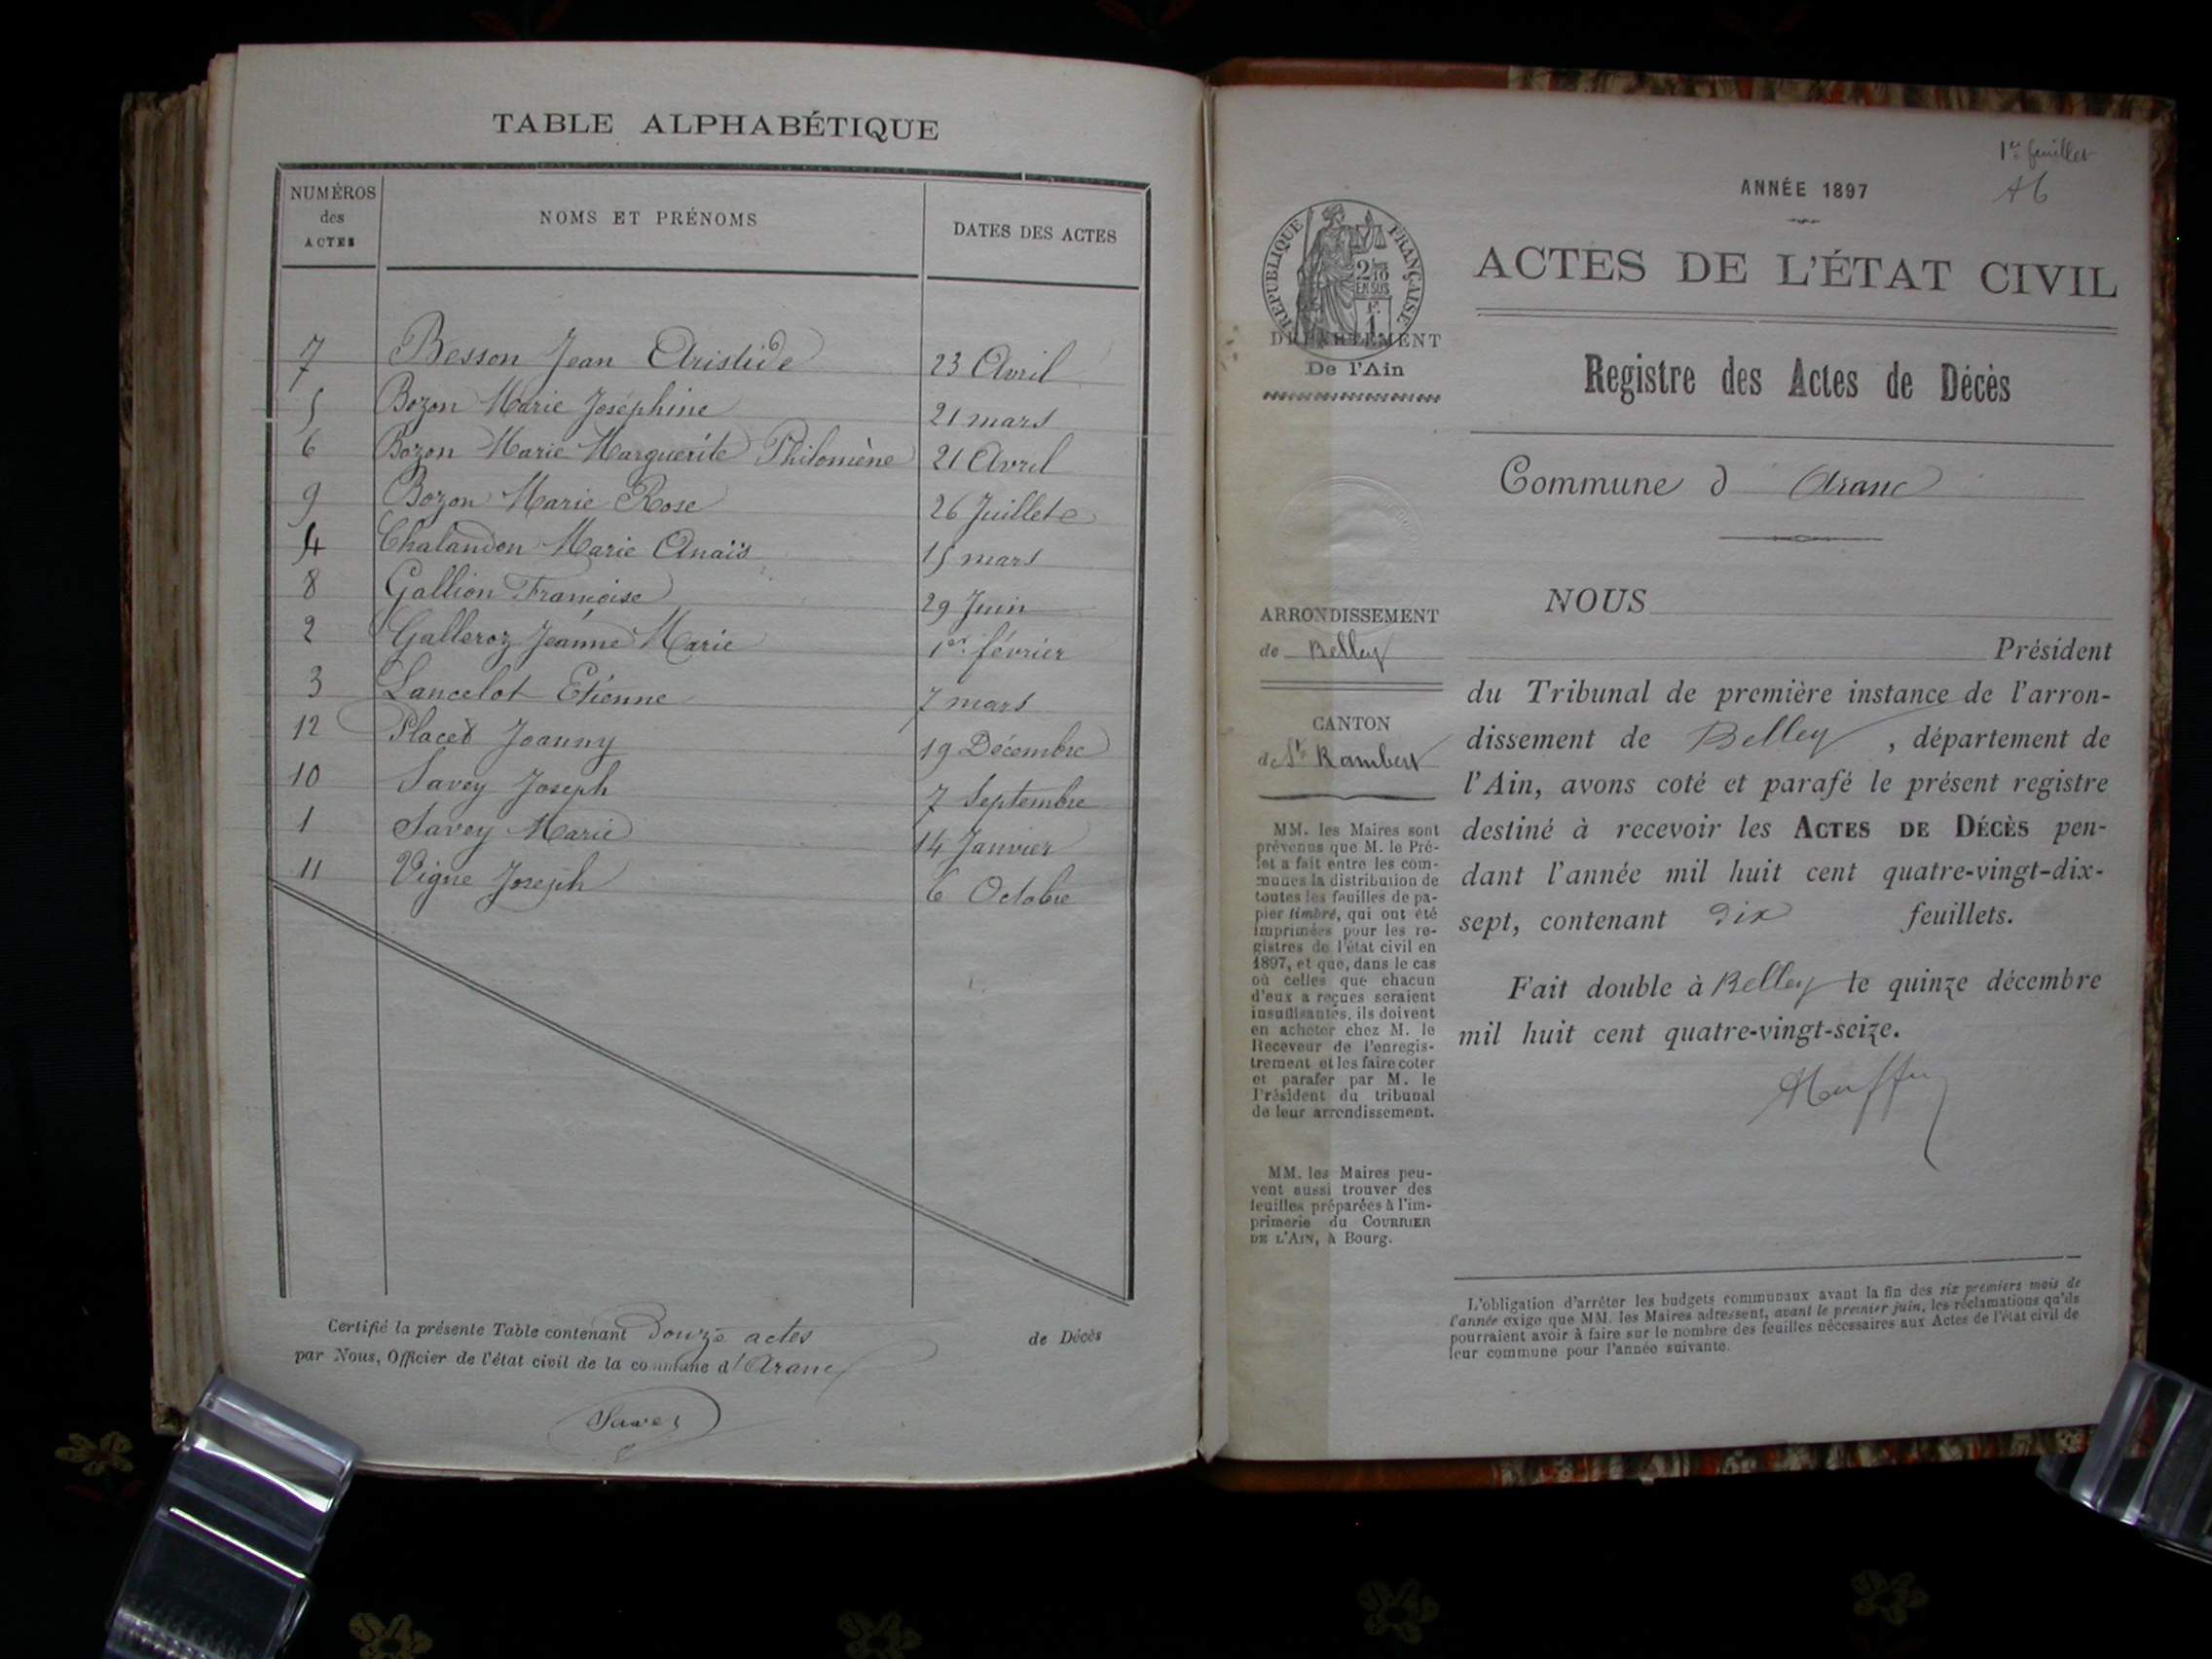 TABLE ALPHABÉTIQUE
NUMÉROS des ACTES
NOMS ET PRÉNOMS
DATES DES ACTES
7 Besson Jean Aristide 23 Avril
5 Bozon Marie Joséphine 21 mars
6 Bozon Marie Marguerite Philomène 21 Avril
9 Bozon Marie Rose 26 Juillet
4 Chalandon Marie Anaïs 15 mars
8 Gallion Françoise 29 Juin
2 Galleroz Jeanne Marie 1er février
3 Lancelot Etienne 7 mars
12 Placed Joanny 19 Décembre
10 Savey Joseph 7 Septembre
1 Savey Marie 14 Janvier
11 Vigne Joseph 6 Octobre
Certifié la présente Table contenant Douze actes de Décès
par Nous, Officier de l'état civil de la commune d'Aranc
Savey
1er feuillet
ANNÉE 1897
RÉPUBLIQUE FRANÇAISE
2/10 EN SUS
F. 1
ACTES DE L'ÉTAT CIVIL
DÉPARTEMENT
De l'Ain
Registre des Actes de Décès
Commune d'Aranc
ARRONDISSEMENT
de Belley
CANTON
de St Rambert
MM. les Maires sont
prévenus que M. le Pré-
fet a fait entre les com-
munes la distribution de
toutes les feuilles de pa-
pier timbré, qui ont été
imprimées pour les re-
gistres de l'état civil en
1897, et que, dans le cas
où celles que chacun
d'eux a reçues seraient
insuffisantes, ils doivent
en acheter chez M. le
Receveur de l'enregis-
trement et les faire coter
et parafer par M. le
Président du tribunal
de leur arrondissement.
MM. les Maires peu-
vent aussi trouver des
feuilles préparées à l'im-
primerie du COURRIER
DE L'AIN, à Bourg.
NOUS
Président
du Tribunal de première instance de l'arron-
dissement de Belley, département de
l'Ain, avons coté et parafé le présent registre
destiné à recevoir les ACTES DE DÉCÈS pen-
dant l'année mil huit cent quatre-vingt-dix-
sept, contenant dix feuillets.
Fait double à Belley le quinze décembre
mil huit cent quatre-vingt-seize.
L'obligation d'arrêter les budgets communaux avant la fin des six premiers mois de
l'année exige que MM. les Maires adressent, avant le premier juin, les réclamations qu'ils
pourraient avoir à faire sur le nombre des feuilles nécessaires aux Actes de l'état civil de
leur commune pour l'année suivante.